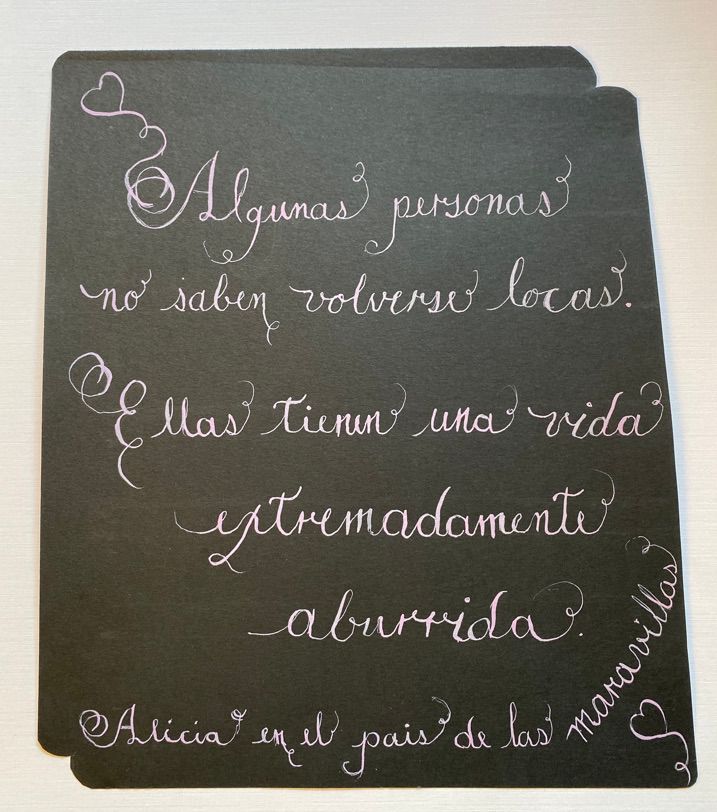 Algunas personas
no saben volverse locas.
Ellas tienen una vida
extremadamente
aburrida.
Alicia en el pais de las maravillas